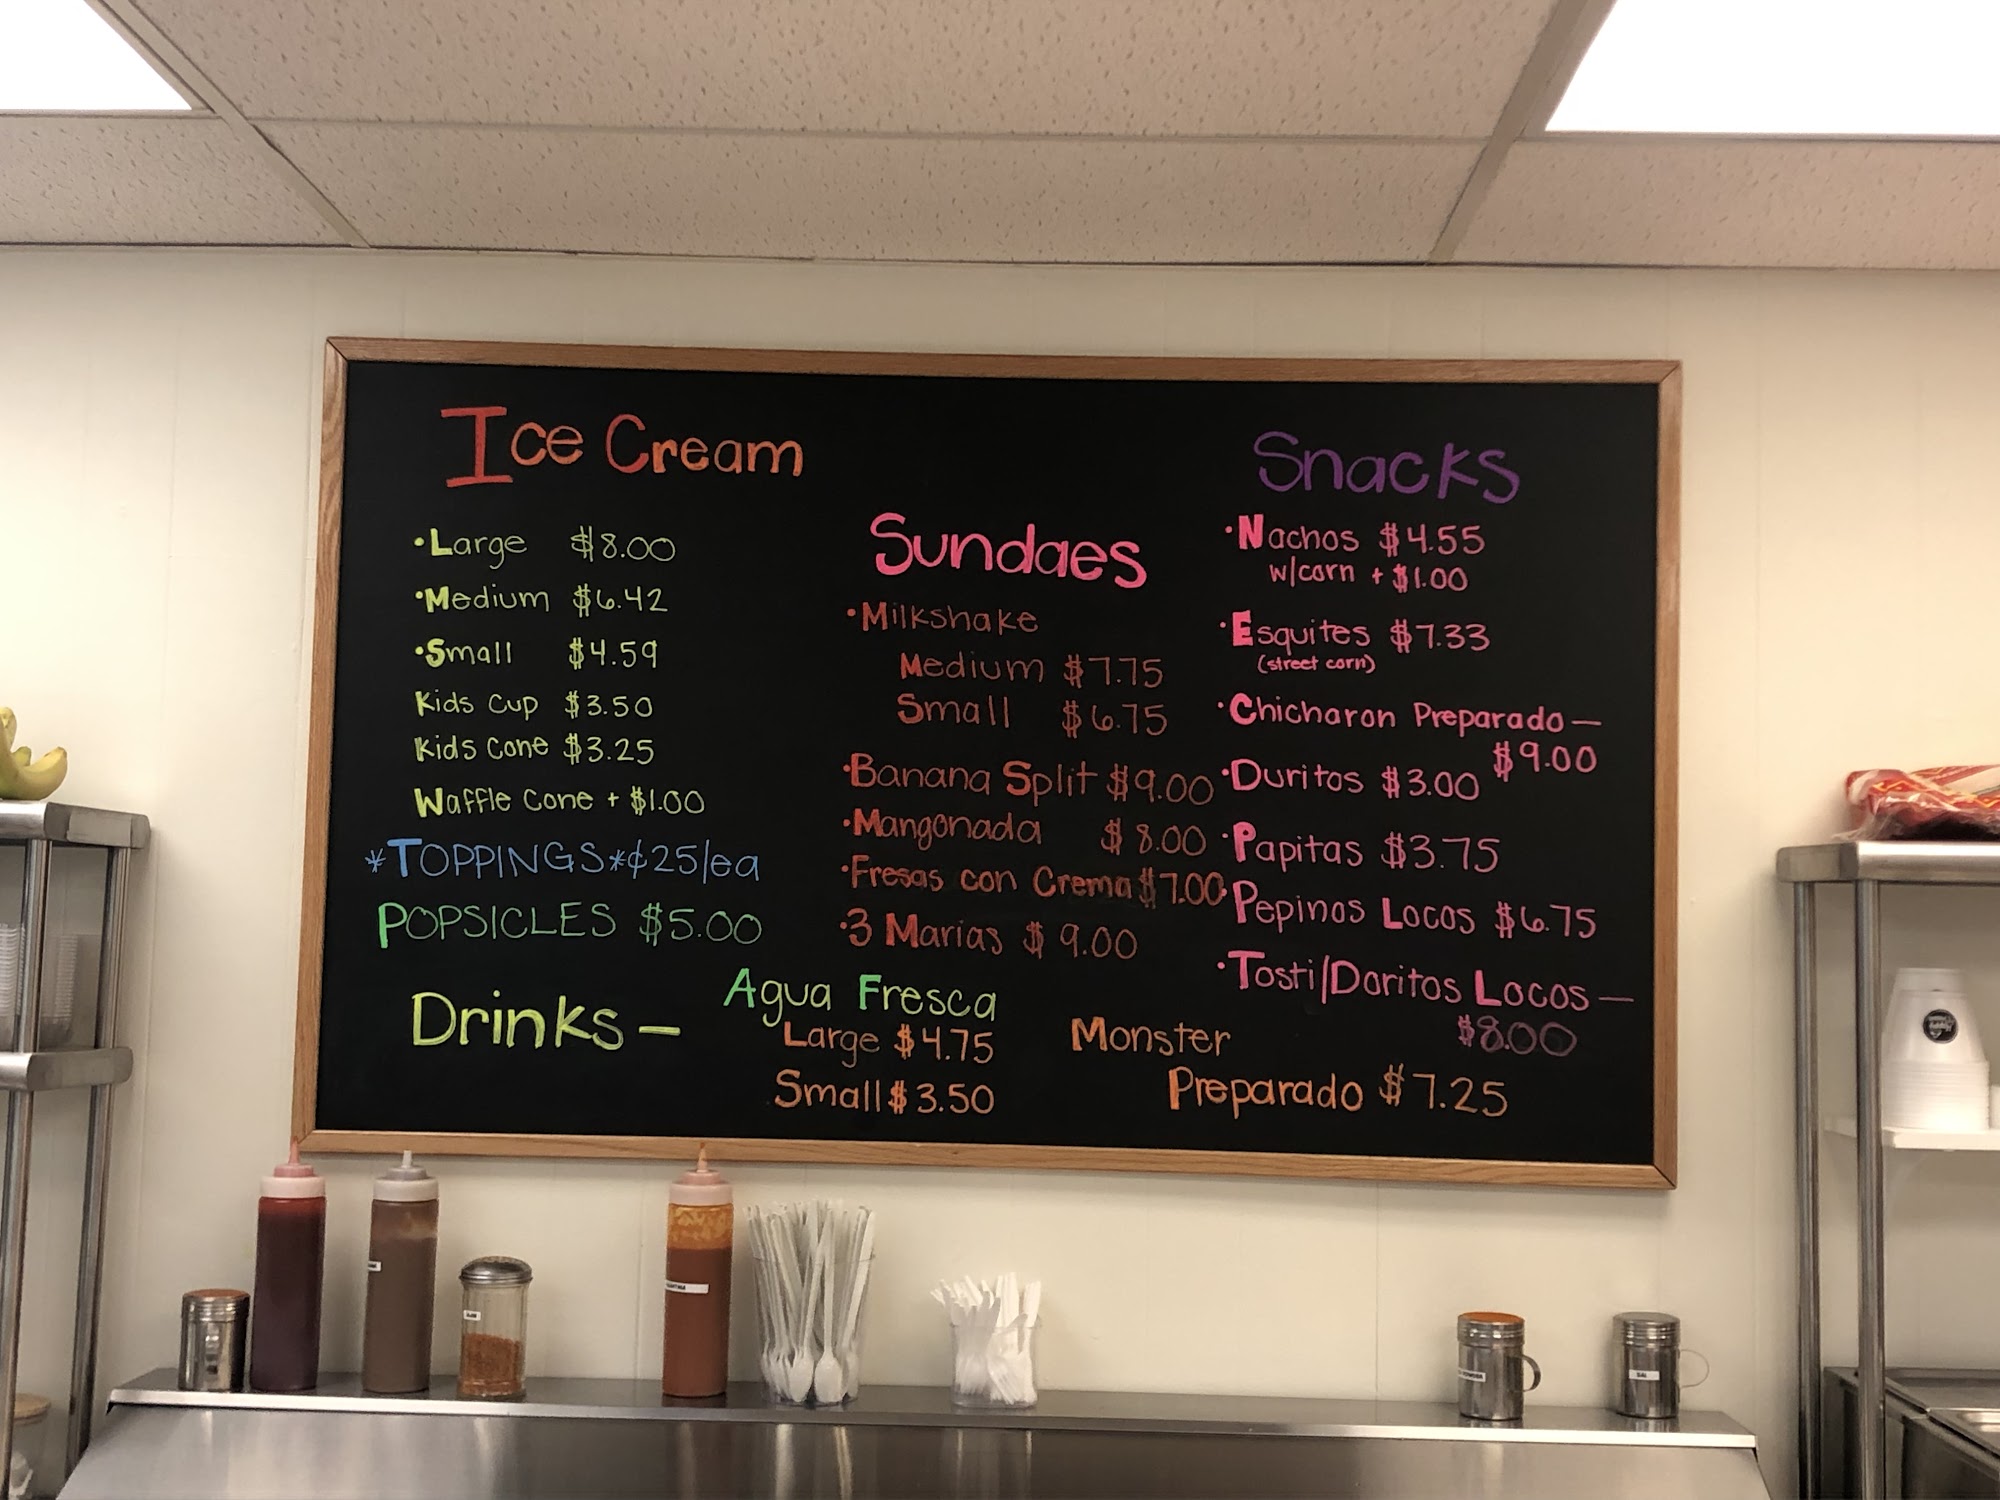 Ice Cream
•Large $8.00
•Medium $6.42
•Small $4.59
Kids Cup $3.50
Kids Cone $3.25
Waffle Cone + $1.00
*TOPPINGS*¢25/ea
POPSICLES $5.00
Sundaes
•Milkshake
Medium $7.75
Small $6.75
•Banana Split $9.00
•Mangonada $8.00
•Fresas con Crema $7.00
•3 Marias $9.00
Snacks
•Nachos $4.55
w/corn + $1.00
•Esquites $7.33
(street corn)
•Chicharon Preparado—
$9.00
•Duritos $3.00
•Papitas $3.75
•Pepinos Locos $6.75
•Tosti/Doritos Locos—
$8.00
Drinks—
Agua Fresca
Large $4.75
Small $3.50
Monster
Preparado $7.25
SAL